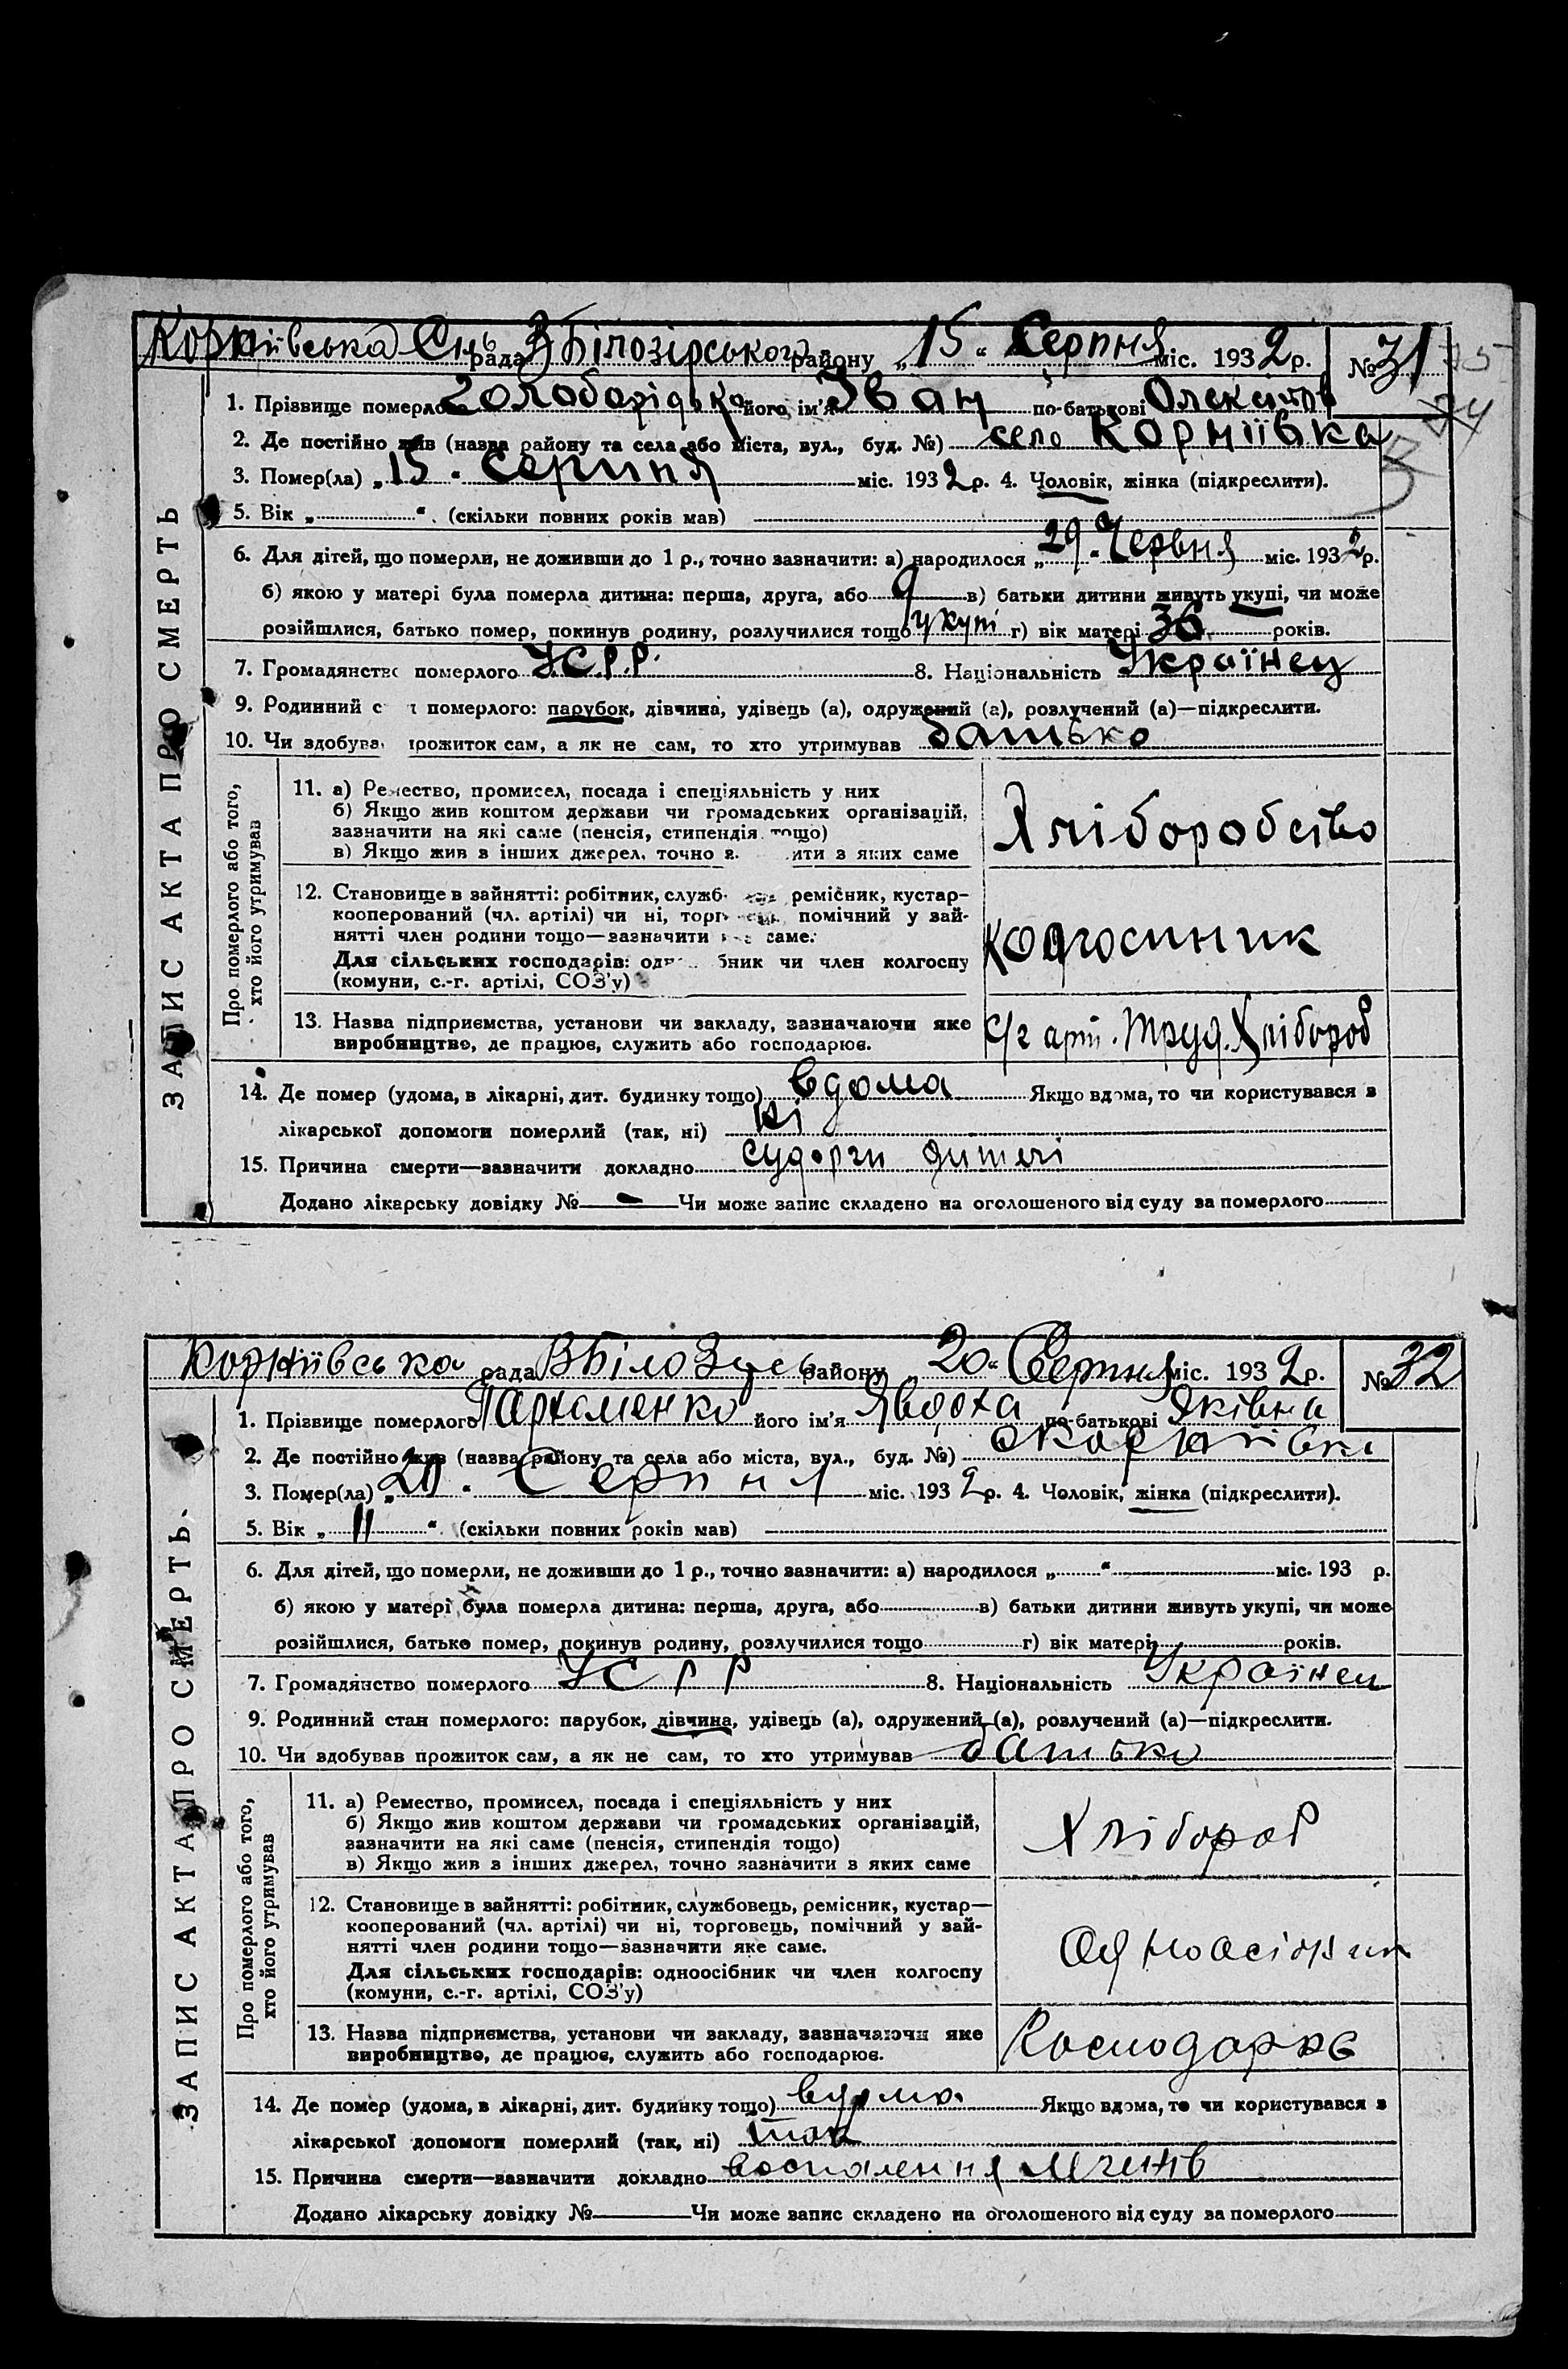 Корніївська Сіль рада В Білозірського району „15“ Серпня міс. 1932 р. № 31
1. Прізвище померлого його ім'я Іван по-батькові
2. Де постійно жив (назва району та села або міста, вул., буд. №) село Корніївка
3. Помер(ла) „15“ Серпня міс. 1932 р. 4. Чоловік, жінка (підкреслити).
5. Вік „ “. (скільки повних років мав)
6. Для дітей, що померли, не доживши до 1 р., точно зазначити: а) народилося „29“ Червня міс. 1932 р.
б) якою у матері була померла дитина: перша, друга, або 9 в) батьки дитини живуть укупі, чи може
розійшлися, батько помер, покинув родину, розлучилися тощо укупі г) вік матері 36 років.
7. Громадянство померлого УСРР 8. Національність Українец
9. Родинний с н померлого: парубок, дівчина, удівець (а), одружений (а), розлучений (а)—підкреслити.
10. Чи здобував прожиток сам, а як не сам, то хто утримував батько
ЗАПИС АКТА ПРО СМЕРТЬ
Про померлого або того,
хто його утримував
11. а) Ремество, промисел, посада і спеціяльність у них
б) Якщо жив коштом держави чи громадських організацій,
зазначити на які саме (пенсія, стипендія тощо)
в) Якщо жив з інших джерел, точно зазначити з яких саме
Хліборобство
12. Становище в зайнятті: робітник, службовець, ремісник, кустар-
кооперований (чл. артілі) чи ні, торговець, помічний у зай-
нятті член родини тощо—зазначити яке саме.
Для сільських господарів: одноосібник чи член колгоспу
(комуни, с.-г. артілі, СОЗ'у)
колгоспник
13. Назва підприємства, установи чи закладу, зазначаючи яке
виробництво, де працює, служить або господарює.
С/г арт. Труд. Хлібороб
14. Де помер (удома, в лікарні, дит. будинку тощо) вдома Якщо вдома, то чи користувався з
лікарської допомоги померлий (так, ні) ні
15. Причина смерти—зазначити докладно судорги дитячі
Додано лікарську довідку № — Чи може запис складено на оголошеного від суду за померлого
Корніївська рада В Білозірс району „20“ Серпня міс. 1932 р. № 32
1. Прізвище померлого Пархоменко його ім'я Явдоха по-батькові Яківна
2. Де постійно жив (назва району та села або міста, вул., буд. №)
3. Помер(ла) „20“ Серпня міс. 1932 р. 4. Чоловік, жінка (підкреслити).
5. Вік „11“. (скільки повних років мав)
6. Для дітей, що померли, не доживши до 1 р., точно зазначити: а) народилося „ “ міс. 193 р.
б) якою у матері була померла дитина: перша, друга, або в) батьки дитини живуть укупі, чи може
розійшлися, батько помер, покинув родину, розлучилися тощо г) вік матері років.
7. Громадянство померлого УСРР 8. Національність Українец
9. Родинний стан померлого: парубок, дівчина, удівець (а), одружений (а), розлучений (а)—підкреслити.
10. Чи здобував прожиток сам, а як не сам, то хто утримував батько
ЗАПИС АКТА ПРО СМЕРТЬ.
Про померлого або того,
хто його утримував
11. а) Ремество, промисел, посада і спеціяльність у них
б) Якщо жив коштом держави чи громадських організацій,
зазначити на які саме (пенсія, стипендія тощо)
в) Якщо жив з інших джерел, точно зазначити з яких саме
Хлібороб
12. Становище в зайнятті: робітник, службовець, ремісник, кустар—
кооперований (чл. артілі) чи ні, торговець, помічний у зай-
нятті член родини тощо—зазначити яке саме.
Для сільських господарів: одноосібник чи член колгоспу
(комуни, с.-г. артілі, СОЗ'у)
13. Назва підприємства, установи чи закладу, зазначаючи яке
виробництво, де працює, служить або господарює.
14. Де помер (удома, в лікарні, дит. будинку тощо) вдома Якщо вдома, то чи користувався з
лікарської допомоги померлий (так, ні) так
15. Причина смерти—зазначити докладно воспалення
Додано лікарську довідку № Чи може запис складено на оголошеного від суду за померлого